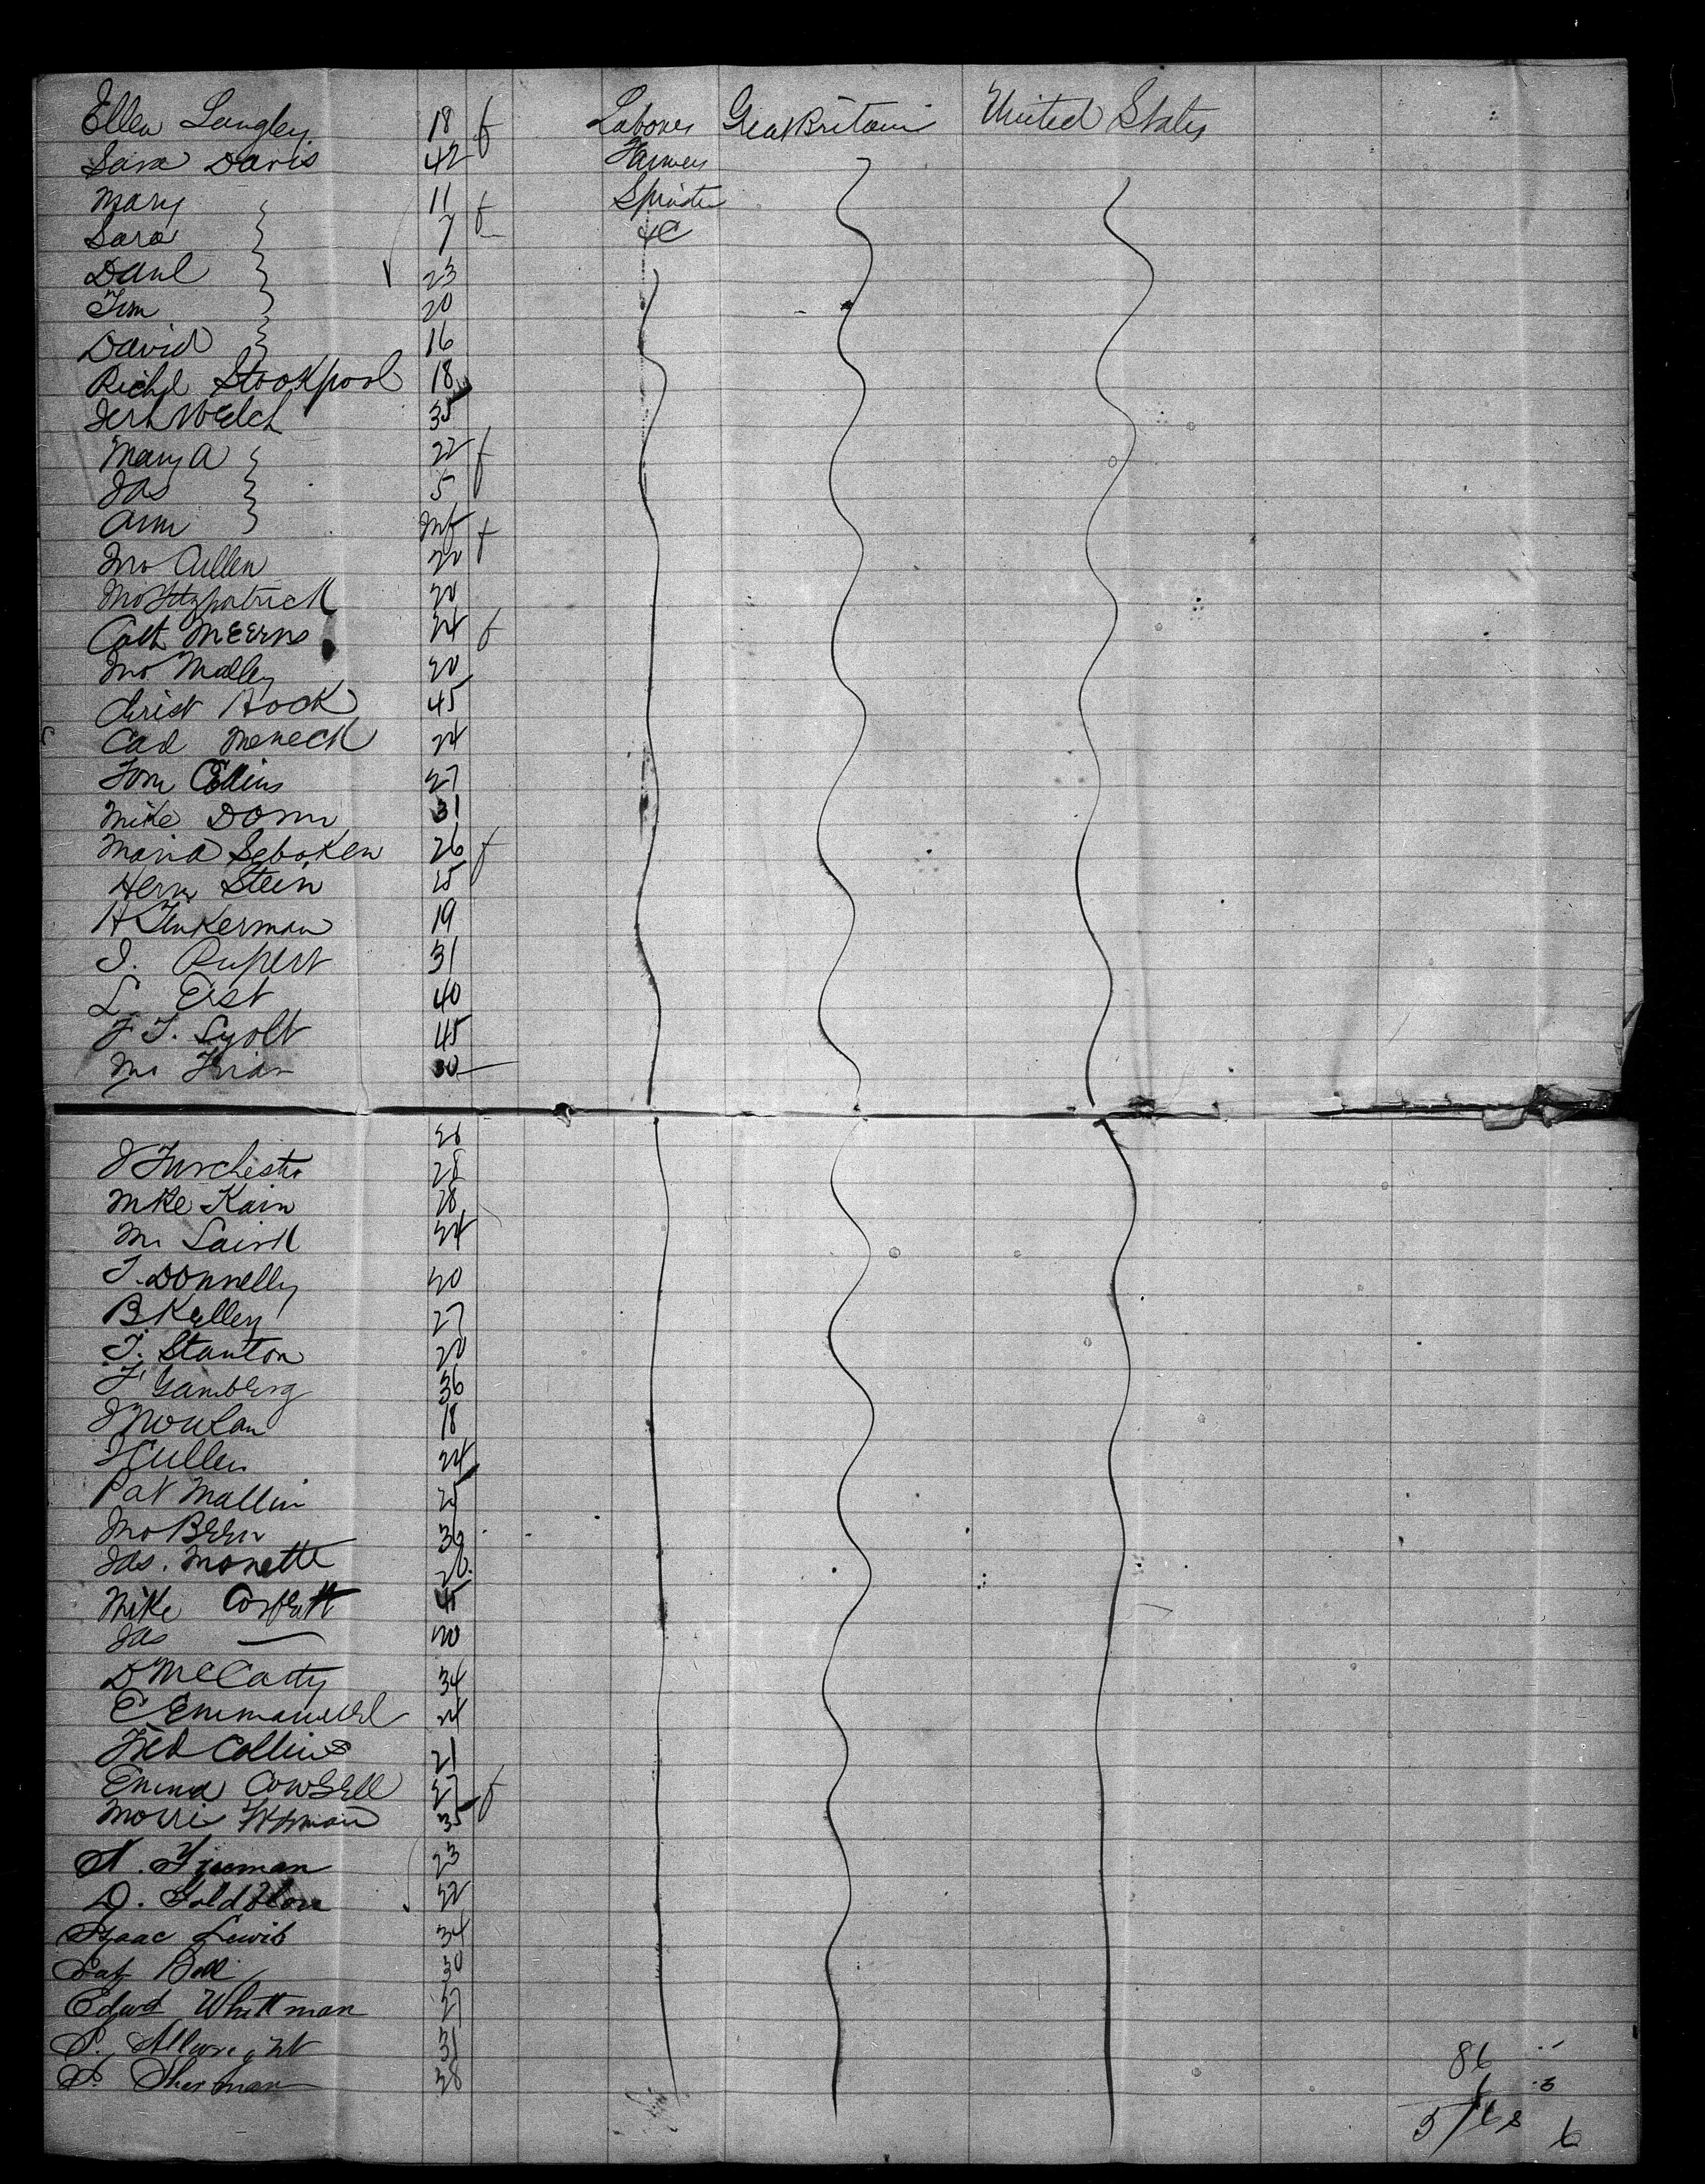 Ellen Langley 18 f Laborer Great Britain United States
Sara Davis 42 Farmer
Mary 11 f Spinster
Sara 7 &C
Danl 23
Tim 20
David 16
Richd Stookpool 18
Jerh Welch 35
Mary A 22 f
Jas 5
Ann Inf f
Jno Cullen 20
Jno Fitzpatrick 20
Cath 24 f
Jno Malley 20
Christ Hock 45
Cad Meneck 24
Tom Collins 27
Mike Donn 31
Maria Seboken 26 f
Herm Stein 25
H Tinkerman 19
J. Rupert 31
L. Erst 40
J. T. Syolt 45
30
26
J 28
Mike Kain 28
M Laird 24
T. Donnelly 20
B Kelley 27
T. Stanton 20
F Gamberg 36
J Nowlan 18
J Cullen 24
Pat Mallin 25
Jno Breen 30
Jas. Monette 26
Mike Corbett 45
Jas — 20
D McCarty 34
C Emmanuel 24
Fred Collins 21
Emma Cowsell 27 f
Morris 35
N. Freeman 23
D. Goldstone 32
Isaac Lewis 34
Pat Bell 30
Edwd Whittman 27
P. Allwright 31
P. Sherman 38
86
6
5/68 6